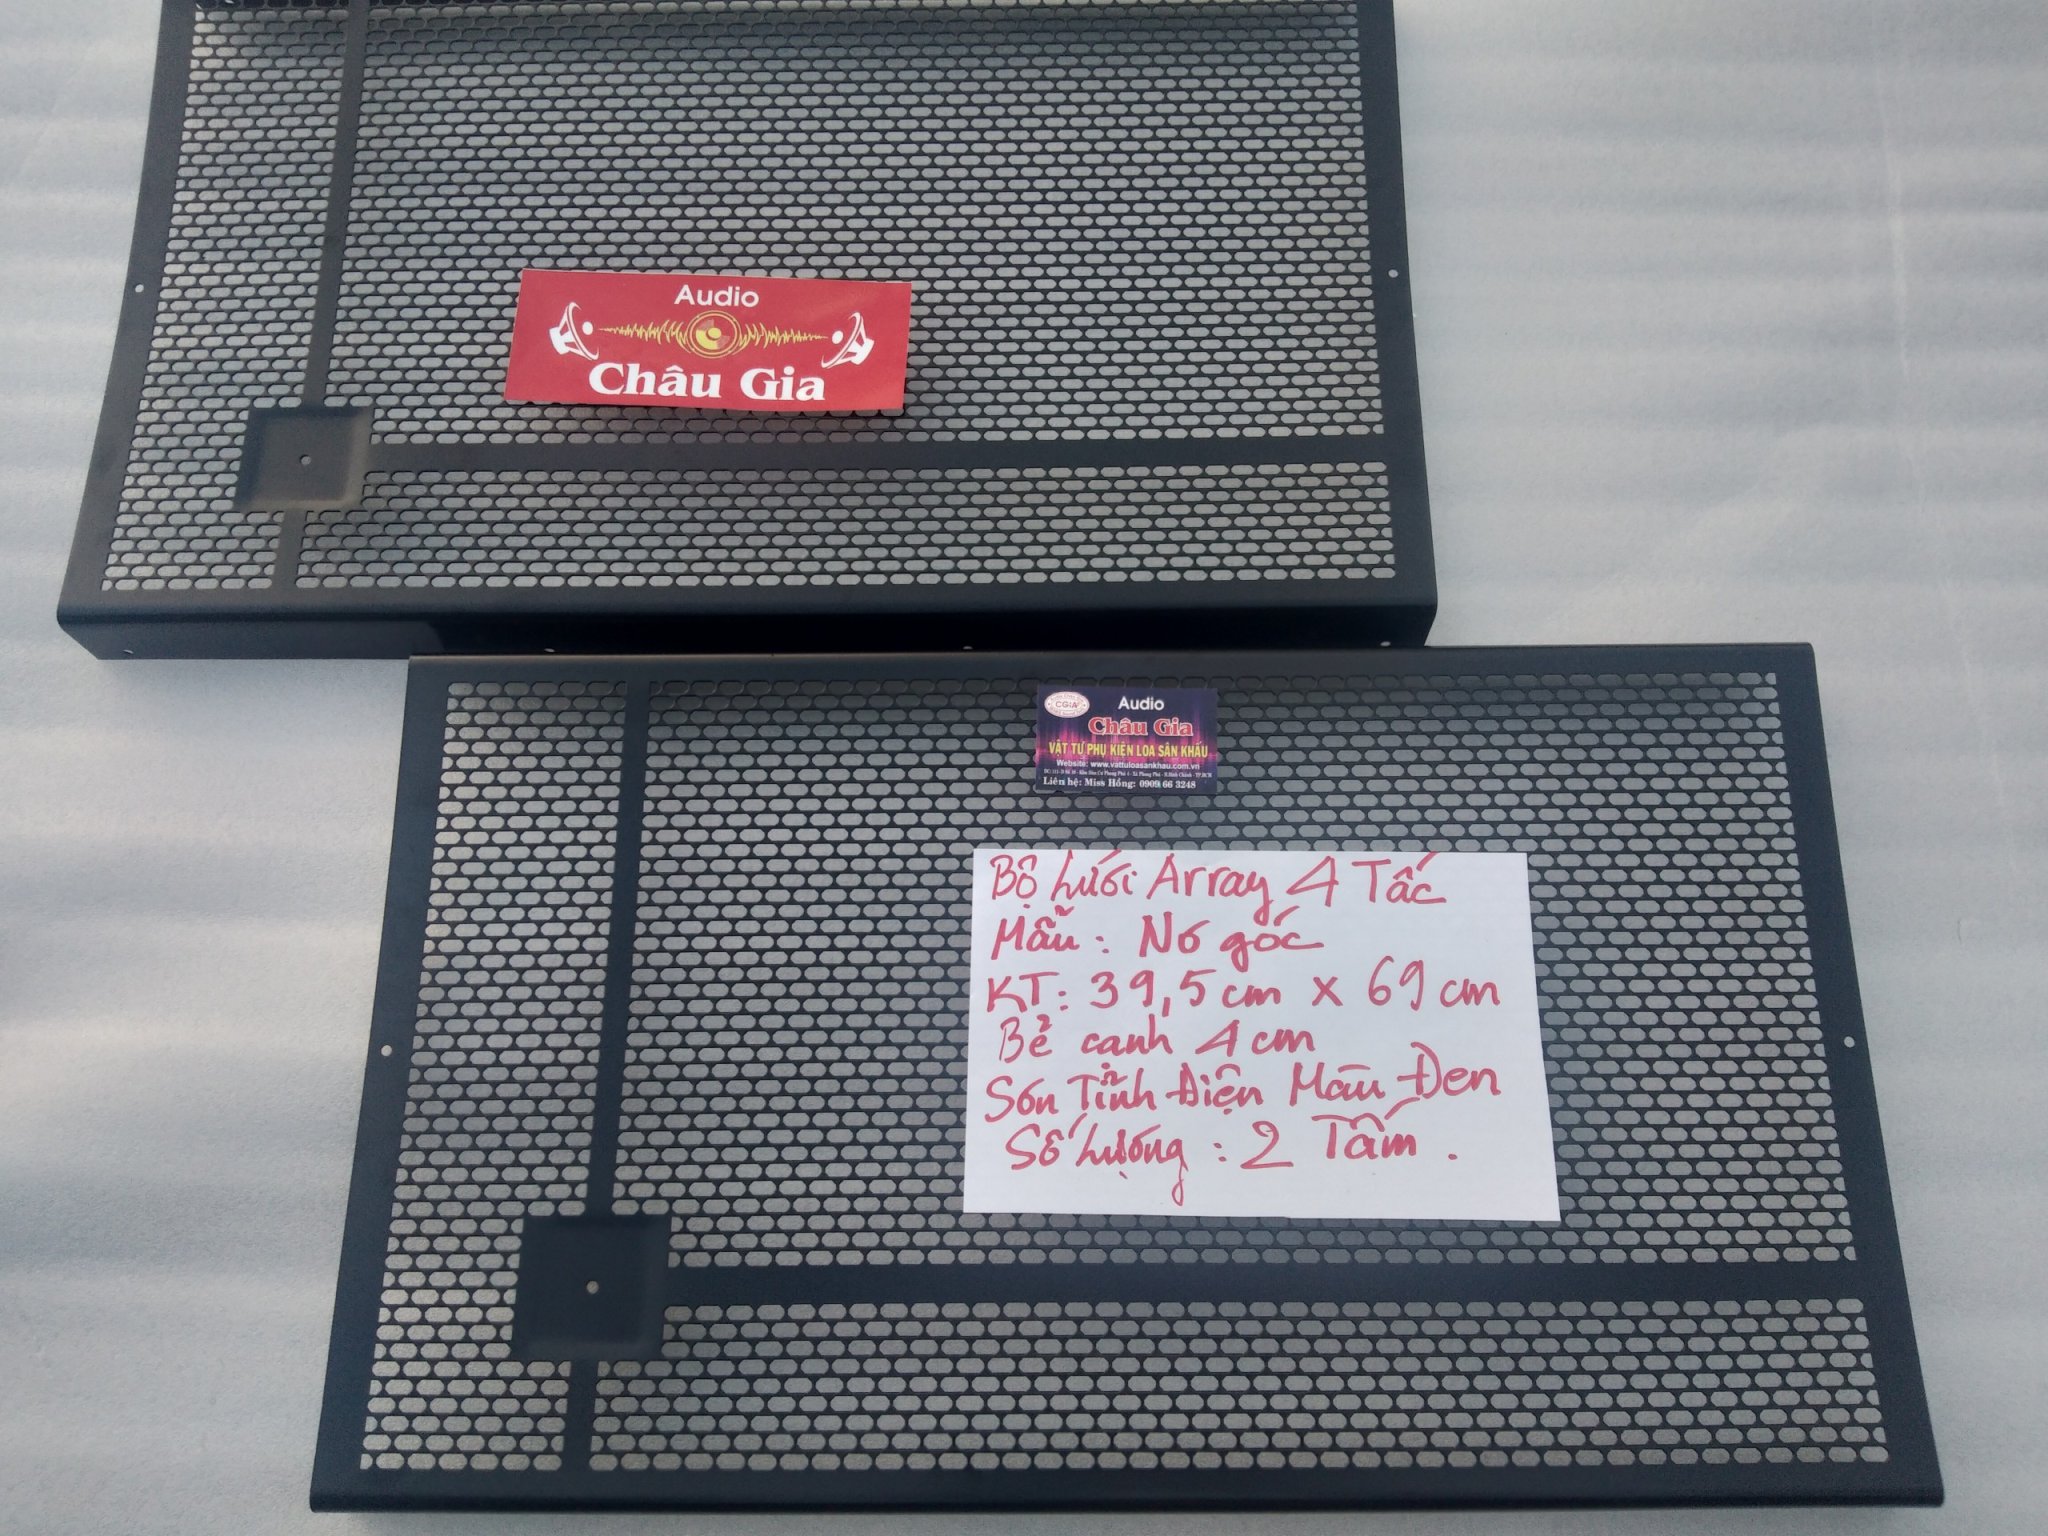 Audio
Châu Gia
CGiA
Audio
Châu Gia
VẬT TƯ PHỤ KIỆN LOA SÂN KHẤU
Website: www.vattuloasankhau.com.vn
Liên hệ: Miss Hồng: 0909 66 3248
Bộ Lưới Array 4 Tấc
Mẫu: Nơ góc
KT: 39,5 cm x 69 cm
Bẻ cạnh 4 cm
Sơn Tĩnh Điện Màu Đen
Số Lượng: 2 Tấm.